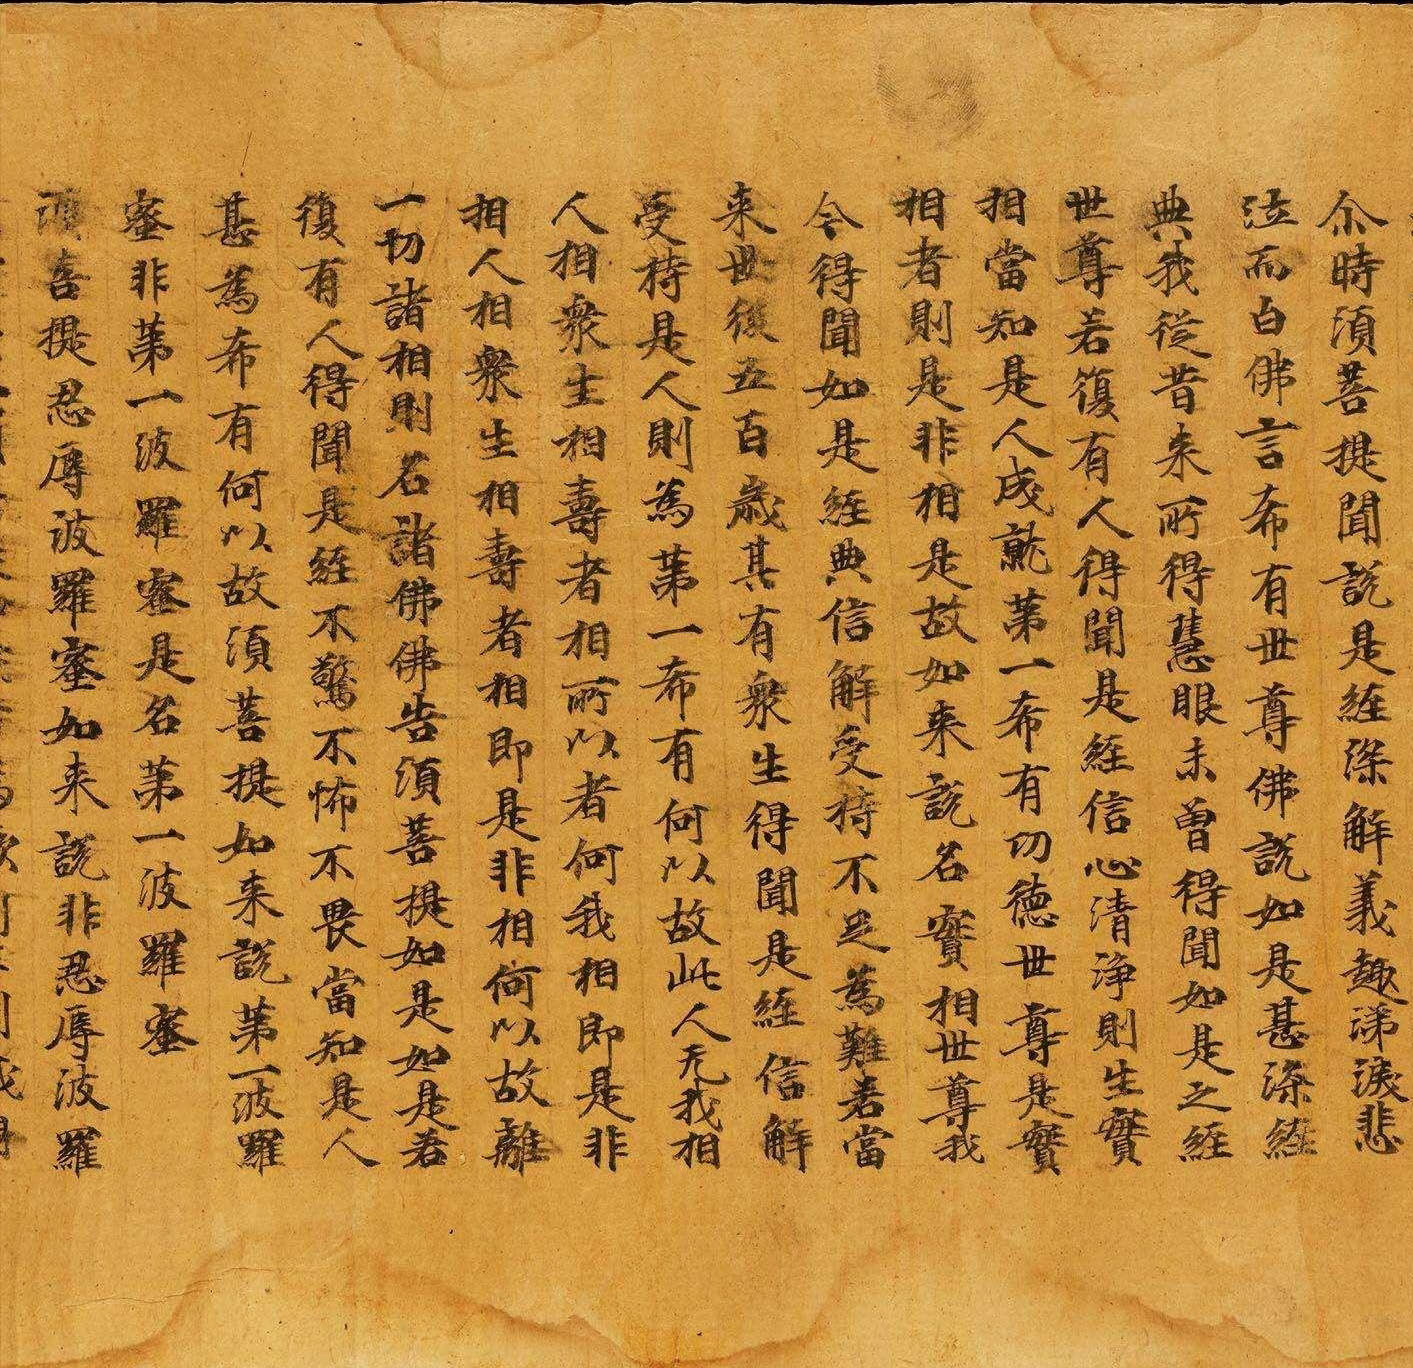 尒時須菩提聞說是經深解義趣涕淚悲
泣而白佛言希有世尊佛說如是甚深經
典我從昔来所得慧眼未曾得聞如是之經
世尊若復有人得聞是經信心清淨則生實
相當知是人成就苐一希有功德世尊是實
相者則是非相是故如来說名實相世尊我
今得聞如是經典信解受持不足為難若當
来世後五百歲其有衆生得聞是經信解
受持是人則為苐一希有何以故此人无我相
人相衆生相壽者相所以者何我相即是非
相人相衆生相壽者相即是非相何以故離
一切諸相則名諸佛佛告須菩提如是如是若
復有人得聞是經不驚不怖不畏當知是人
甚為希有何以故須菩提如来說苐一波羅
蜜非苐一波羅蜜是名苐一波羅蜜
須菩提忍辱波羅蜜如来說非忍辱波羅